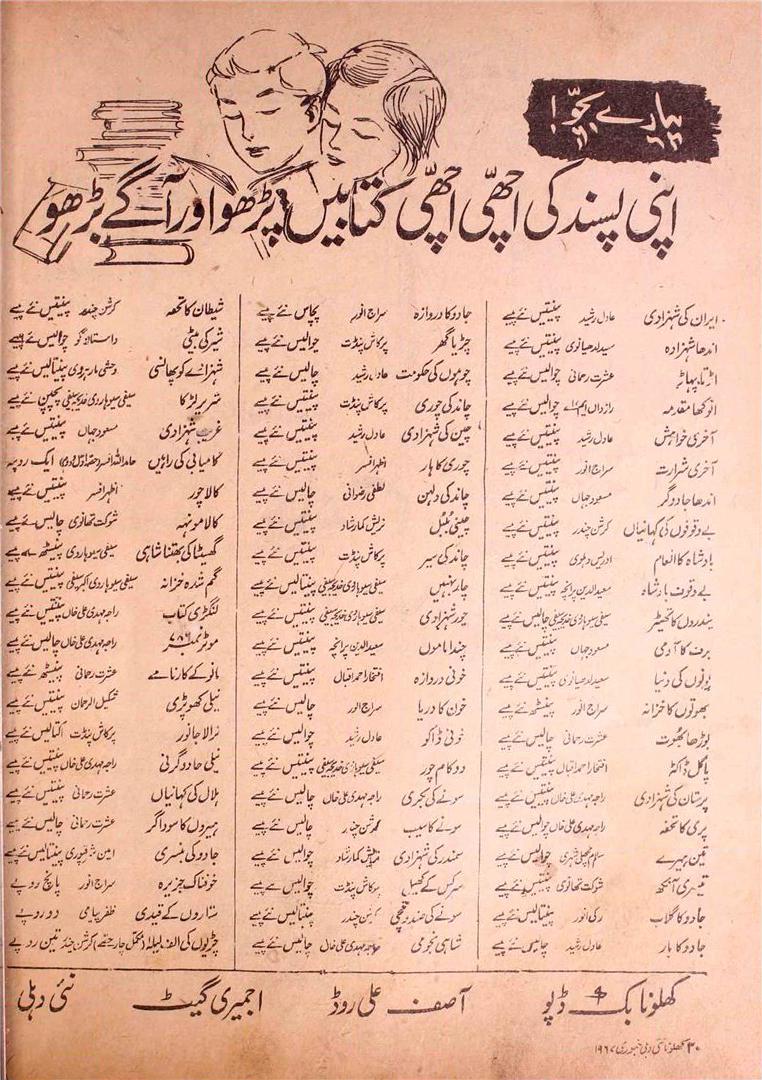 پیارے بچّو!
اپنی پسند کی اچھّی اچھّی کتابیں پڑھو اور آگے بڑھو
ایران کی شہزادی عادل رشید پینتیس نئے پیسے
اندھا شہزادہ سعید لدھیانوی پینتیس نئے پیسے
اڑتا پہاڑ عشرت رحمانی چوالیس نئے پیسے
انوکھا مقدمہ رازداں ایم اے چوالیس نئے پیسے
آخری خواہش عادل رشید پینتیس نئے پیسے
آخری شرارت سراج انور پینتیس نئے پیسے
اندھا جادوگر مسعود جہاں پینتیس نئے پیسے
بے وقوفوں کی کہانیاں کرشن چندر پینتیس نئے پیسے
بادشاہ کا انعام ادریس دہلوی پینتیس نئے پیسے
بے وقوف بادشاہ سعید الدین پراچہ پینتیس نئے پیسے
بندروں کا تھیٹر سیفی سیوہاروی خدیجہ سیفی چالیس نئے پیسے
برف کا آدمی مسعود جہاں پینتیس نئے پیسے
بونوں کی دنیا سعید لدھیانوی پینتیس نئے پیسے
بھوتوں کا خزانہ سراج انور پینسٹھ نئے پیسے
بوڑھا بھوت عشرت رحمانی چالیس نئے پیسے
پاگل ڈاکٹر افتخار احمد اقبال پینتیس نئے پیسے
پرستان کی شہزادی راجہ مہدی علی خاں پینتیس نئے پیسے
پری کا تحفہ راجہ مہدی علی خاں چوالیس نئے پیسے
تین ہیرے سلام مچھلی شہری چوالیس نئے پیسے
تیسری آنکھ شوکت تھانوی پینتیس نئے پیسے
جادو کا گلاب زکی انور پینتالیس نئے پیسے
جادو کا ہار عادل رشید چالیس نئے پیسے
جادو کا دروازہ سراج انور پچاس نئے پیسے
چڑیا گھر پرکاش پنڈت چوالیس نئے پیسے
چوہوں کی حکومت عادل رشید چالیس نئے پیسے
چاند کی چوری پرکاش پنڈت پینتیس نئے پیسے
چین کی شہزادی عادل رشید پینتیس نئے پیسے
چوری کا ہار اظہر افسر پینتیس نئے پیسے
چاند کی دلہن لطفی رضوانی چالیس نئے پیسے
چینی بلبل نریش کمار شاد پینتیس نئے پیسے
چاند کی سیر پرکاش پنڈت پینتیس نئے پیسے
چار بہنیں سیفی سیوہاروی خدیجہ سیفی پینتالیس نئے پیسے
چور شہزادی سیفی سیوہاروی خدیجہ سیفی پینتیس نئے پیسے
چندا ماموں سعید الدین پراچہ پینتیس نئے پیسے
خونی دروازہ افتخار احمد اقبال پینتیس نئے پیسے
خون کا دریا سراج انور چالیس نئے پیسے
خونی ڈاکو عادل رشید چوالیس نئے پیسے
دو کام چور سیفی سیوہاروی خدیجہ سیفی پینتیس نئے پیسے
سونے کی بکری راجہ مہدی علی خاں چالیس نئے پیسے
سونے کا سیب کرشن چندر چالیس نئے پیسے
سمندر کی شہزادی نریش کمار شاد چالیس نئے پیسے
سرکس کے کھیل پرکاش پنڈت چوالیس نئے پیسے
سونے کی صندوقچی کرشن چندر پینتالیس نئے پیسے
شاہی نجومی راجہ مہدی علی خاں چالیس نئے پیسے
شیطان کا تحفہ کرشن چندر پینتیس نئے پیسے
شیر کی بیٹی داستان گو چوالیس نئے پیسے
شہزادے کو پھانسی وحشی مارہروی پینتالیس نئے پیسے
شریر لڑکا سیفی سیوہاروی خدیجہ سیفی پچپن نئے پیسے
غریب شہزادی مسعود جہاں پینتیس نئے پیسے
کامیابی کی راہیں حامد اللہ افسر (حصہ اوّل و دوم) ایک روپیہ
کالا چور اظہر افسر پینتیس نئے پیسے
کالا مونہہ شوکت تھانوی چالیس نئے پیسے
گھسیٹا کی بھتنا شاہی سیفی سیوہاروی پینسٹھ نئے پیسے
گم شدہ خزانہ سیفی سیوہاروی اکبر سیفی پینتیس نئے پیسے
لنگڑی کتاب راجہ مہدی علی خاں پینتیس نئے پیسے
موٹر نمبر ۷۸۶ راجہ مہدی علی خاں چالیس نئے پیسے
بانو کے کارنامے عشرت رحمانی پینسٹھ نئے پیسے
نیلی کھوپڑی شکیل الرحمان پینتیس نئے پیسے
نرالا جانور پرکاش پنڈت اکتالیس نئے پیسے
نیلی جادوگرنی راجہ مہدی علی خاں پینتیس نئے پیسے
ہلال کی کہانیاں عشرت رحمانی پینتیس نئے پیسے
ہیروں کا سوداگر عشرت رحمانی چالیس نئے پیسے
جادو کی بنسری پینتالیس نئے پیسے
خوفناک جزیرہ سراج انور پانچ روپے
ستاروں کے قیدی ظفر پیامی دو روپے
چڑیوں کی الف لیلہ (مکمل چار حصے) کرشن چندر تین روپے
کھلونا بک ڈپو آصف علی روڈ اجمیری گیٹ نئی دہلی
۳۰ کھلونا نئی دہلی جنوری ۱۹۶۷